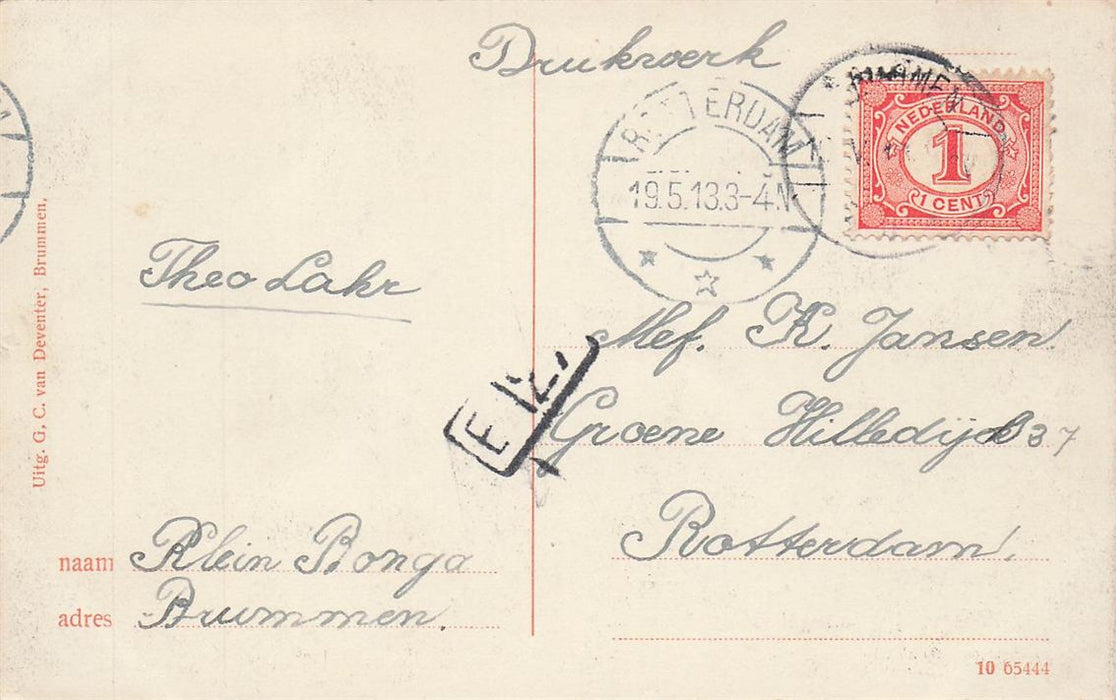 Drukwerk
BRUMMEN
NEDERLAND
1
1 CENT
ROTTERDAM
19.5.13 3-4 N
Theo Lahr
Mej. K. Jansen
Groene Hilledijk 37
Rotterdam.
E 12
naam Klein Bonga
adres Brummen.
Uitg. G. C. van Deventer, Brummen,
10 65444